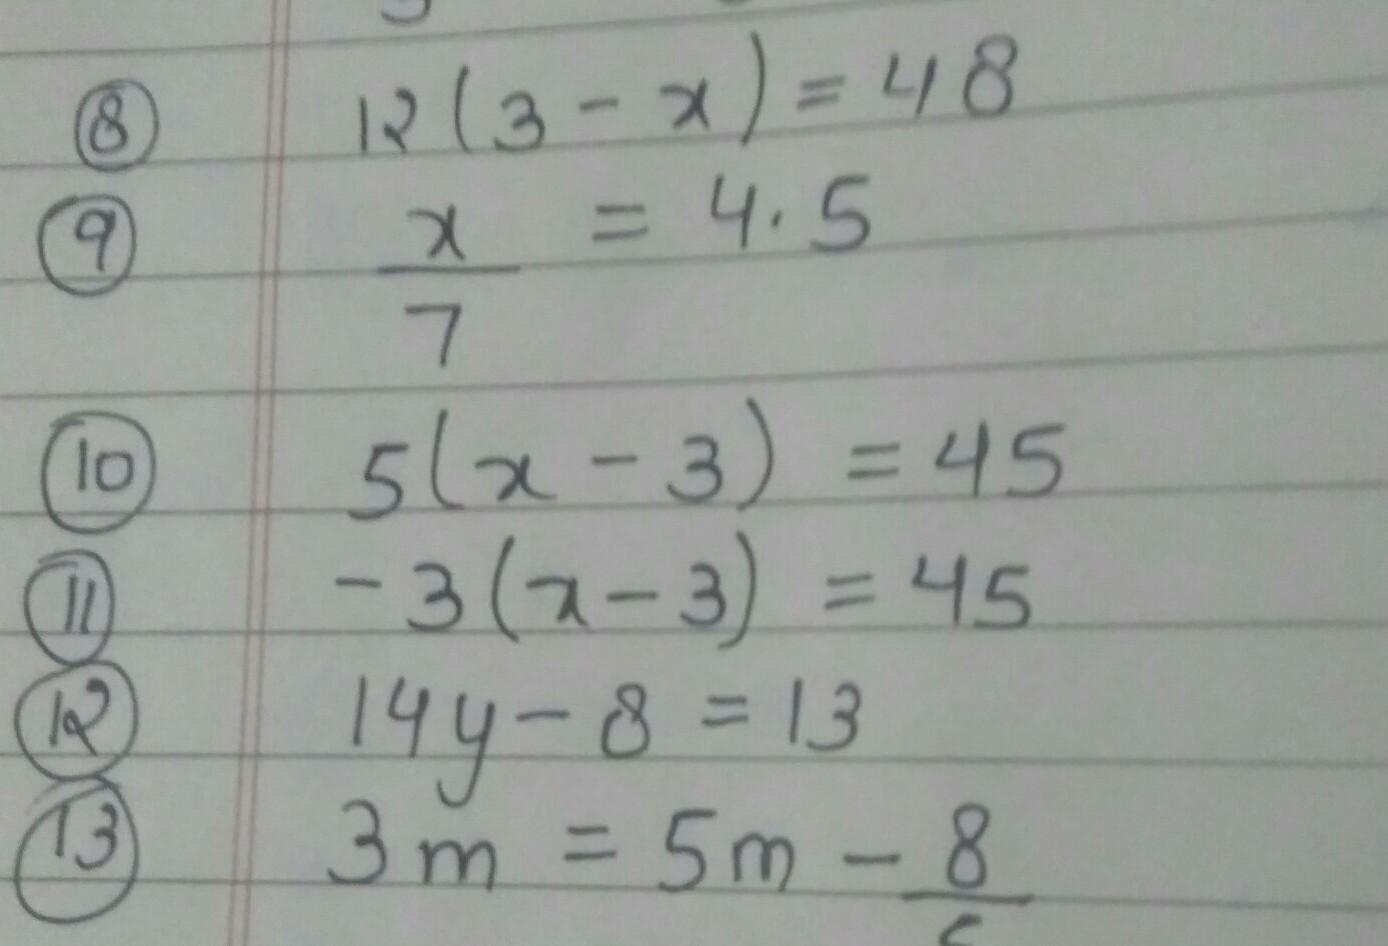 ⑧ 12(3 - x) = 48
⑨ x/7 = 4.5
⑩ 5(x - 3) = 45
⑪ -3(x - 3) = 45
⑫ 14y - 8 = 13
⑬ 3m = 5m - 8/